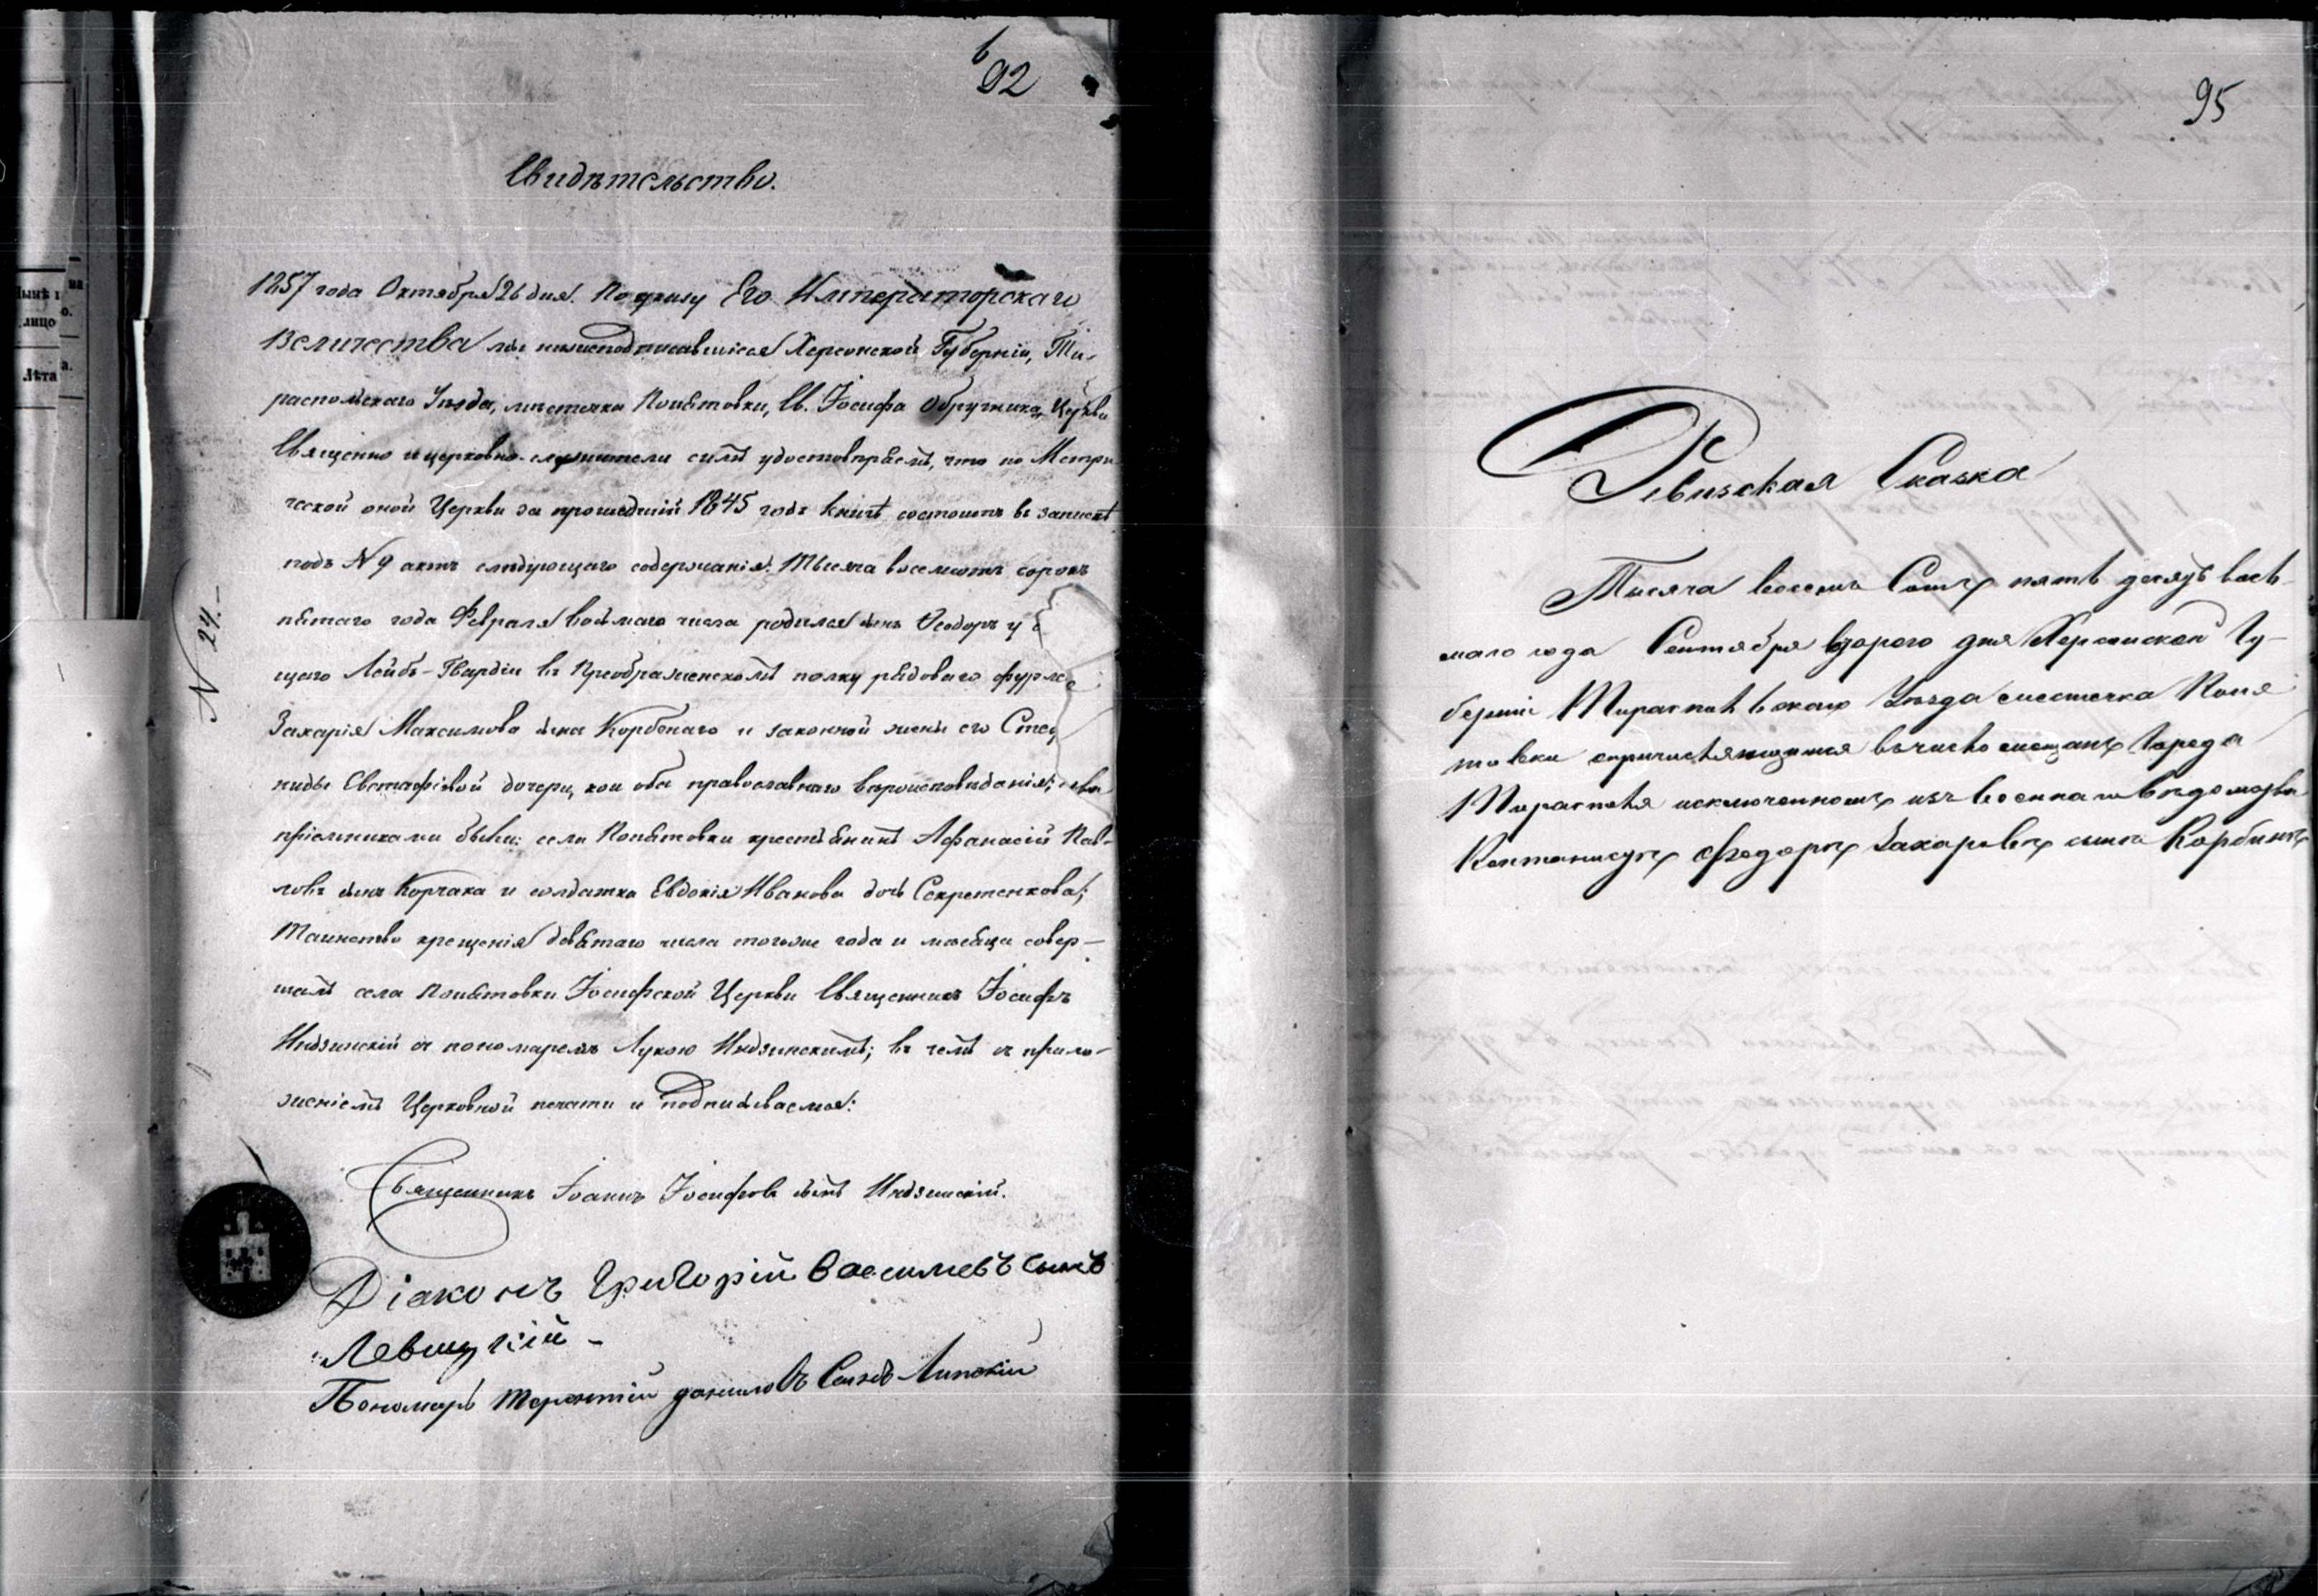 92
Свидѣтельство.
1857 года Октября 26 дня. По указу Его Императорскаго
Величества мы нижеподписавшіеся Херсонской Губерніи, Ти-
распольскаго Уѣзда, мѣстечка Понятовки, Св. Іосифа Обручника Церкви
Священно и церковно-служители симъ удостовѣряемъ, что по Метри
ческой оной Церкви за прошедшій 1845 годъ книгѣ состоитъ въ запискѣ
подъ N 9 актъ слѣдующаго содержанія: Тысяча восемьсотъ сорокъ
пятаго года Февраля восьмаго числа родился сынъ Ѳеодоръ у
щаго Лейбъ-Гвардіи въ Преображенскомъ полку рядоваго
Захарія Максимова сына Корбенаго и законной жены его
ниды Евстафіевой дочери, кои оба православнаго вѣроисповѣданія;
пріемниками были: села Понятовки крестьянинъ Афанасій Пав-
ловъ сынъ Корчака и солдатка Евдокія Иванова дочь Секретенкова;
Таинство крещенія девятаго числа тогоже года и мѣсяца совер-
шалъ села Понятовки Іосифской Церкви Священникъ Іосифъ
Индзинскій съ пономаремъ Лукою Индзинскимъ; въ чемъ съ прило-
женіемъ Церковной печати и подписываемся:
Священникъ Іоаннъ Іосифовъ сынъ Индзинскій.
Діаконъ Григорій Василиевъ сынъ
Левицкій -
Пономарь Терентій даниловъ Сынъ Липскій
N 24.-
95
Ревизская Сказка
Тысяча восемь Сотъ пять десятъ вось
маго года Сентября второго дня Херсонской Гу-
берніи Тираспольскаго Уѣзда местечка Поня
товки о причисляющимся въ число мещанъ Города
Тирасполя исключенномъ изъ военнаго ведомства
Кантонистъ Федоръ Захаровъ сынъ Корбинъ
Нынѣ
лицо
Лѣта
на
о.
а.